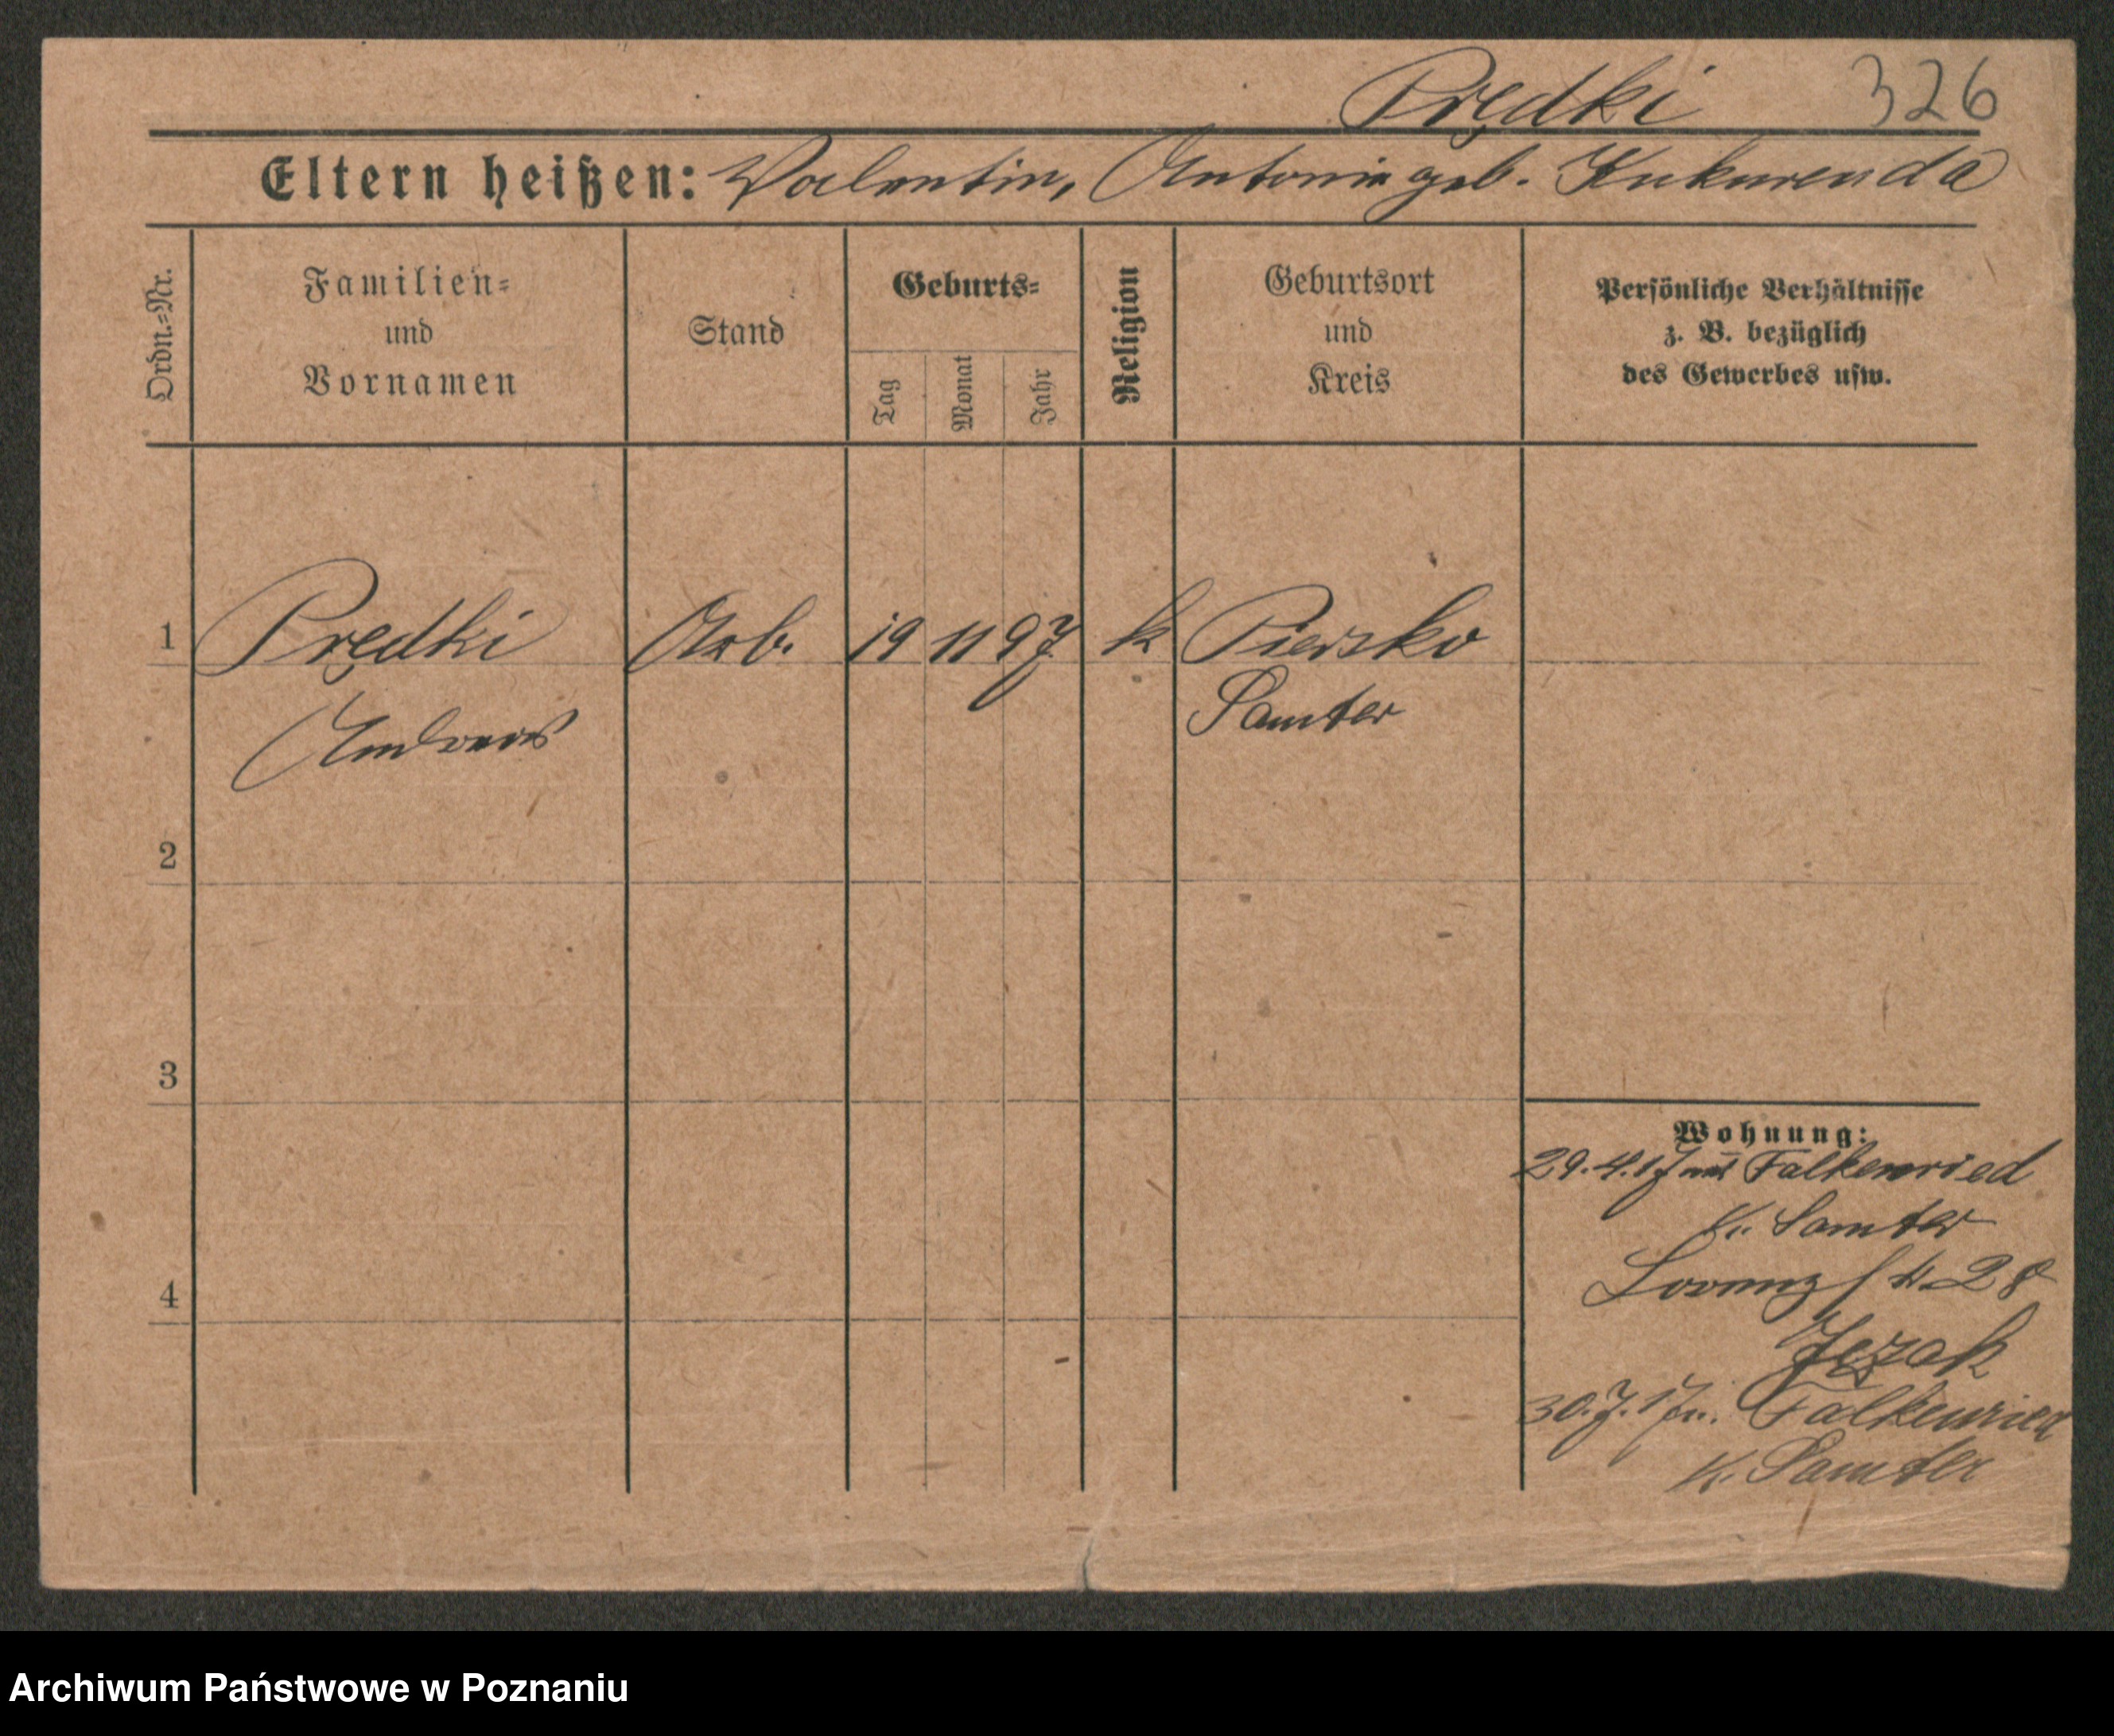 Prędki 326
Eltern heißen: Valentin, Antonie geb. Kukurenda
Ordn.=Nr.
Familien=
und
Vornamen
Stand
Geburts=
Tag
Monat
Jahr
Religion
Geburtsort
und
Kreis
Persönliche Verhältnisse
z. B. bezüglich
des Gewerbes usw.
1 Prędki Arb. 19 11 97 k Piersko
Andreas Samter
2
3
4
Wohnung:
29.4.17 Falkenried
K. Samter
Lorenz st 28
Jęzak
30.7.17 n. Falkenried
K. Samter
Archiwum Państwowe w Poznaniu